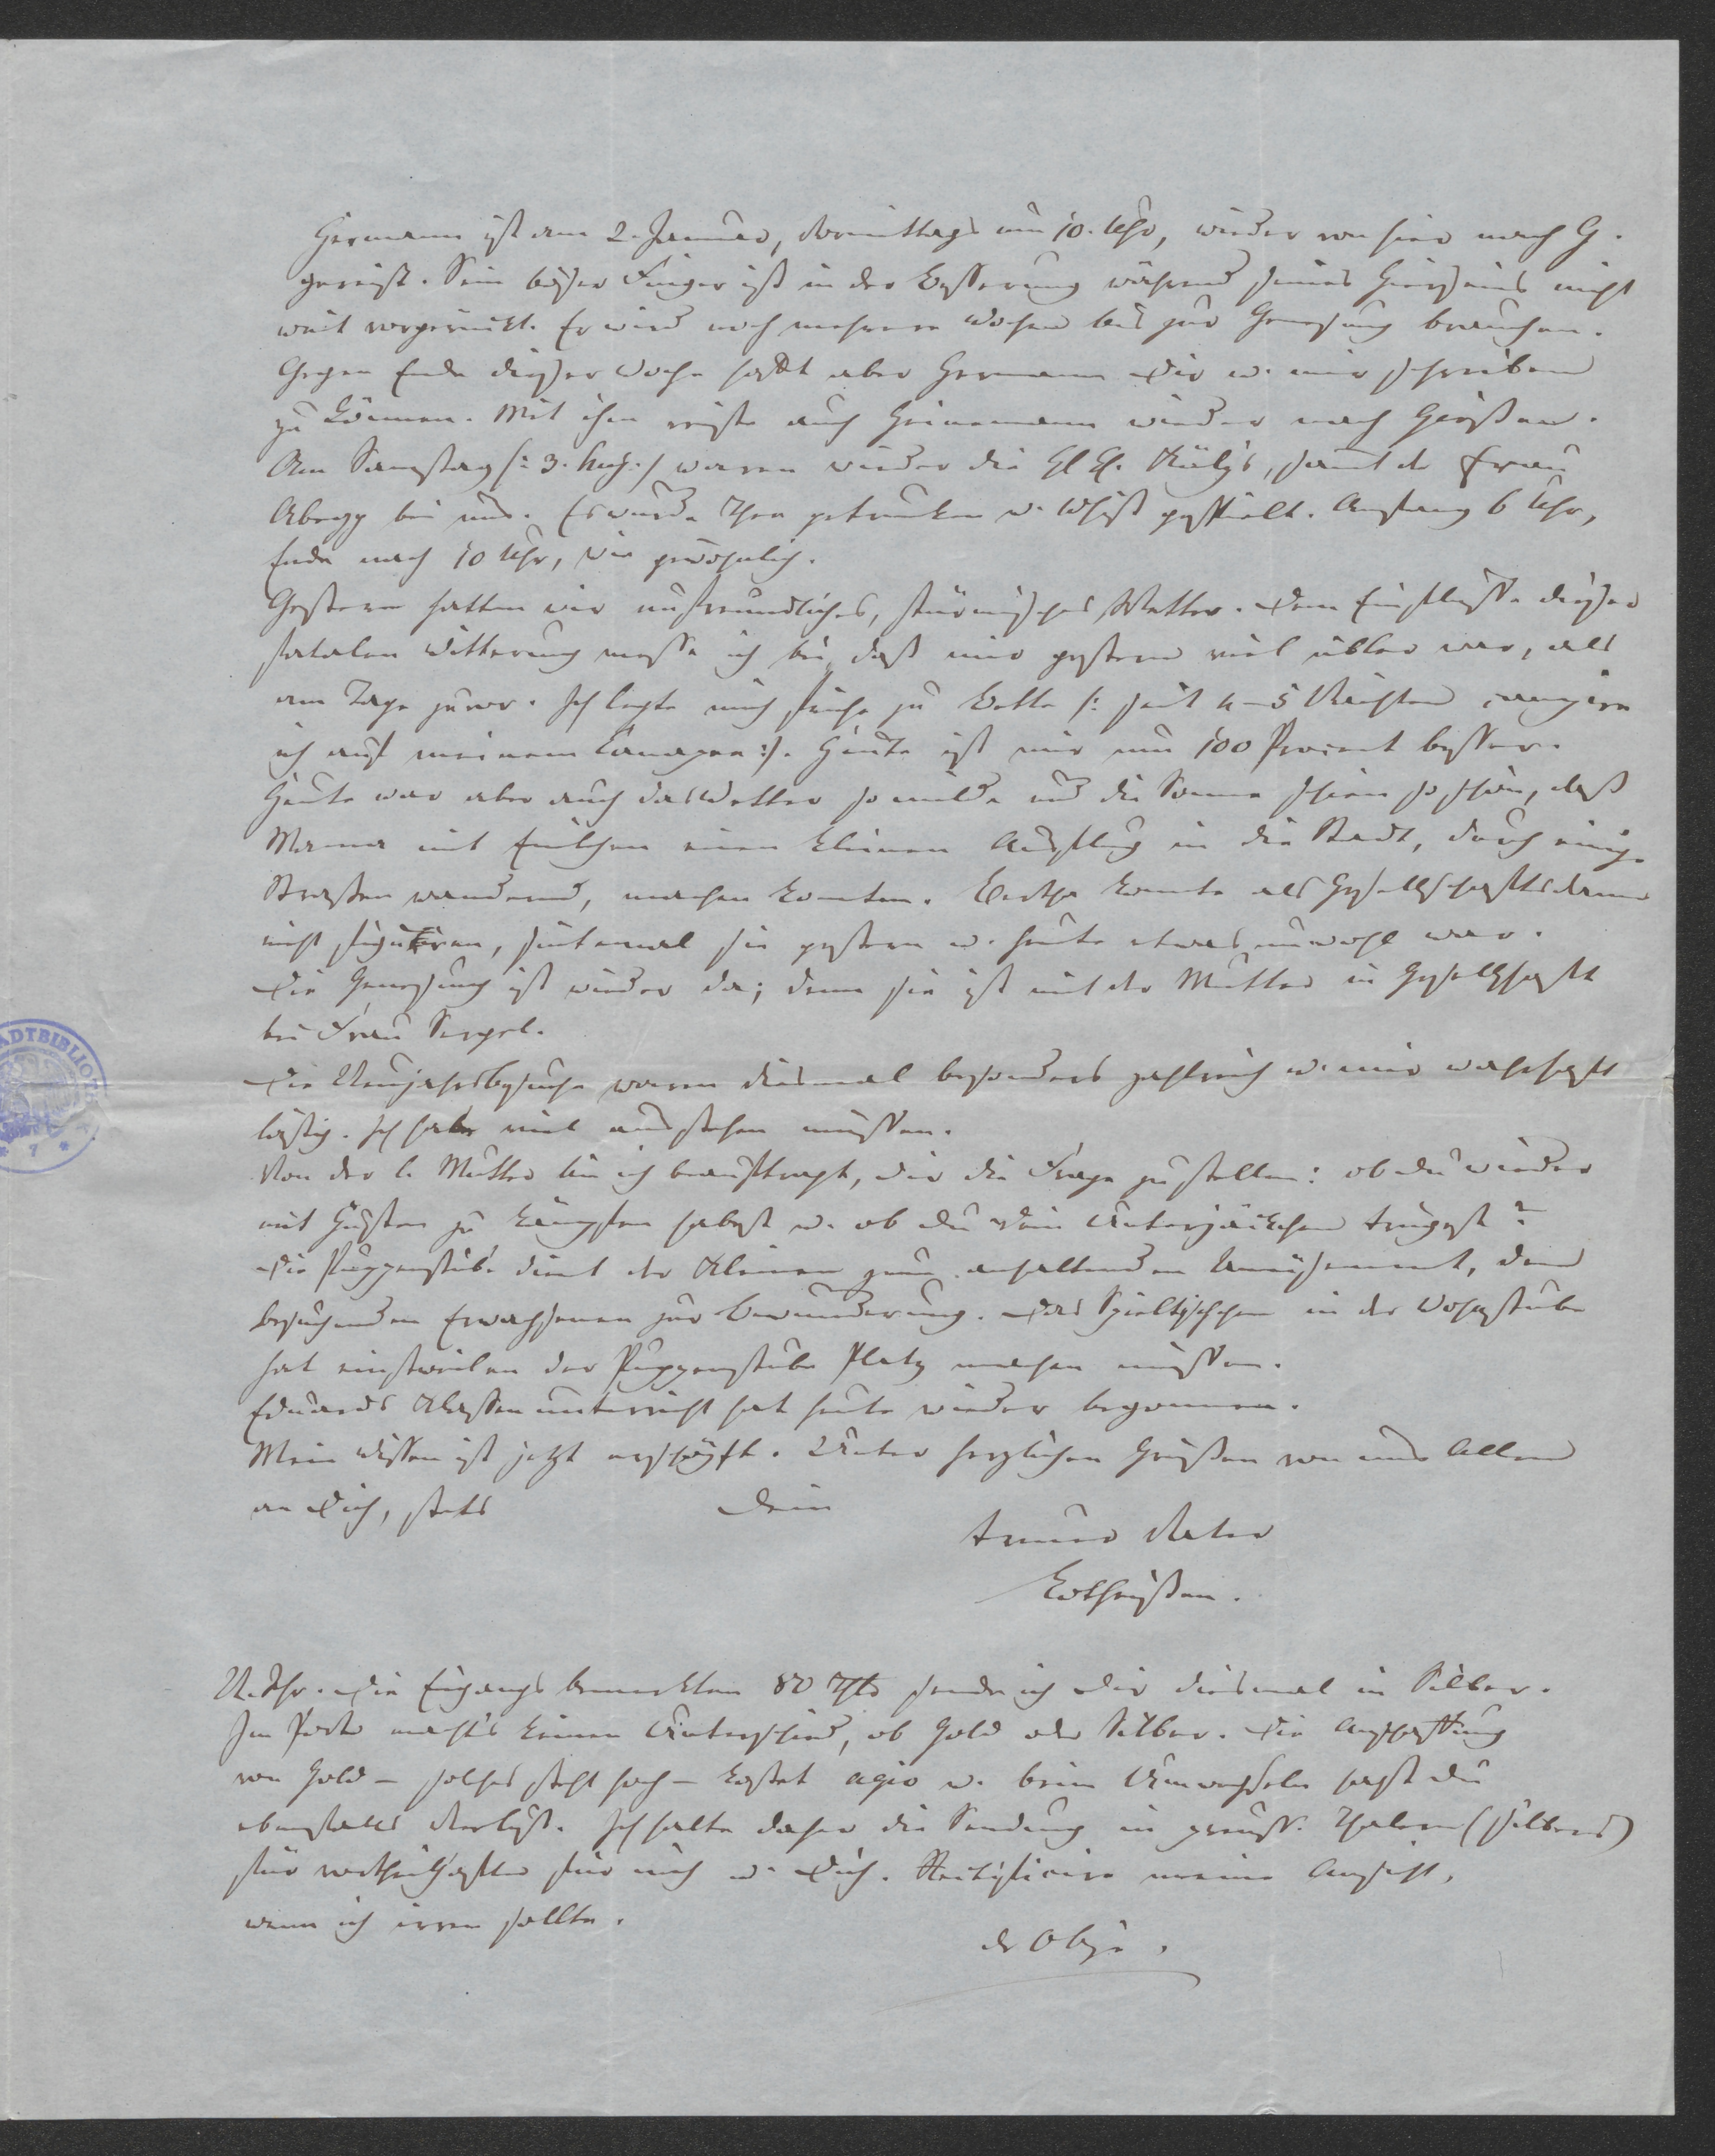 Hermann ist am 2. Januar, Vormittags um 10. Uhr, wieder von hier nach G.
gereist. Sein böser Finger ist in der Besserung während seines Hierseins nicht
weit vorgerückt. Er wird noch mehrere Wochen bis zur Genesung brauchen.
Gegen Ende dieser Woche hofft aber Hermann Dir u. mir schreiben
zu können. Mit ihm reiste auch Heinemann wieder nach Gießen.
Am Samstag /: 3. :/ waren wieder die HH. , samt der Frau
Abegg bei uns. Es wurde Thee getrunken u. Whist gespielt. Anfang 6 Uhr,
Ende nach 10 Uhr, wie gewöhnlich.
Gestern hatten wir unfreundliches, stürmisches Wetter. Dem Einflusse dieser
fatalen Witterung messe ich bei, daß mir gestern viel übler war, als
am Tage zuvor. Ich legte mich frühe zu Bette /: seit 4–5 Nächten campire
ich auf meinem Canapee :/. Heute ist mir um 100 Procent besser.
Heute war aber auch das Wetter so milde und die Sonne schien so schön, daß
Mama mit Emilchen einen kleinen Ausflug in die Stadt, durch einige
Straßen wandernd, machen konnten. Bertha konnte als Gesellschaftsdame
nicht figuriren, sintemal sie gestern u. heute etwas unwohl war.
Die Genesung ist wieder da; denn sie ist mit der Mutter in Gesellschaft
bei Frau .
Die Neujahrsbesuche waren diesmal besonders zahlreich u. mir wahrhaft
lästig. Ich habe viel ausstehen müssen.
Von der l. Mutter bin ich beauftragt, Dir die Frage zu stellen: ob du wieder
mit Husten zu kämpfen habest u. ob du Dein Unterjäckchen trügest?
Die Puppenstube dient der Kleinen zum anhaltenden Amüsement, den
besuchenden Erwachsenen zur Bewunderung. Das Spieltischchen in der Wohnstube
hat einstweilen der Puppenstube Platz machen müssen.
Eduards Klassenunterricht hat heute wieder begonnen.
Mein Wissen ist jetzt erschöpft. Unter herzlichen Grüßen von uns Allen
an Dich, stets Dein
treuer Vater
Lotheißen.
N. Schr. Die Eingangs bemerkten 80 Thlr sende ich Dir diesmal in Silber.
Im Porto macht's keinen Unterschied, ob Gold oder Silber. Die Anschaffung
von Gold – solches steht hoch – kostet agio u. beim Umwechseln hast du
ebenfalls Verlust. Ich halte daher die Sendung in preuss. Thalern (Silbers)
für vortheilhafter für mich u. Dich. Rectificire meine Ansicht,
wenn ich irren sollte.
der Obige.